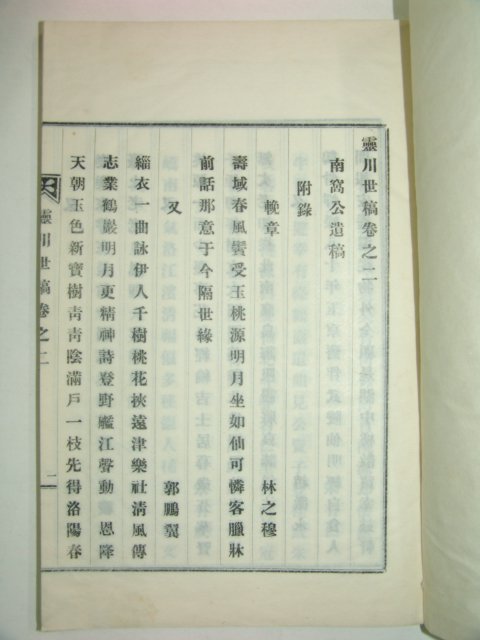 靈川世稿卷之二
南窩公遺稿
附錄
輓章 林之穆
壽域春風鬢受玉桃源明月坐如仙可憐客臘牀
前話那意于今隔世緣
又 郭鵬翼
緇衣一曲詠伊人千樹桃花挾遠津樂社清風傳
志業鶴巖明月更精神詩登野艦江聲動恩降
天朝玉色新寶樹靑靑陰滿戶一枝先得洛陽春
靈川世稿 卷之二 一